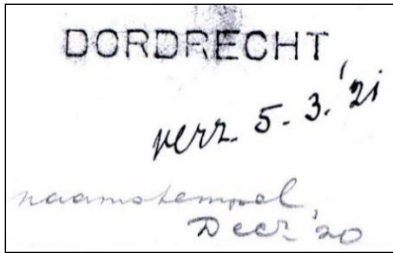 DORDRECHT
verz. 5.3.'21
naamstempel
Decr '20